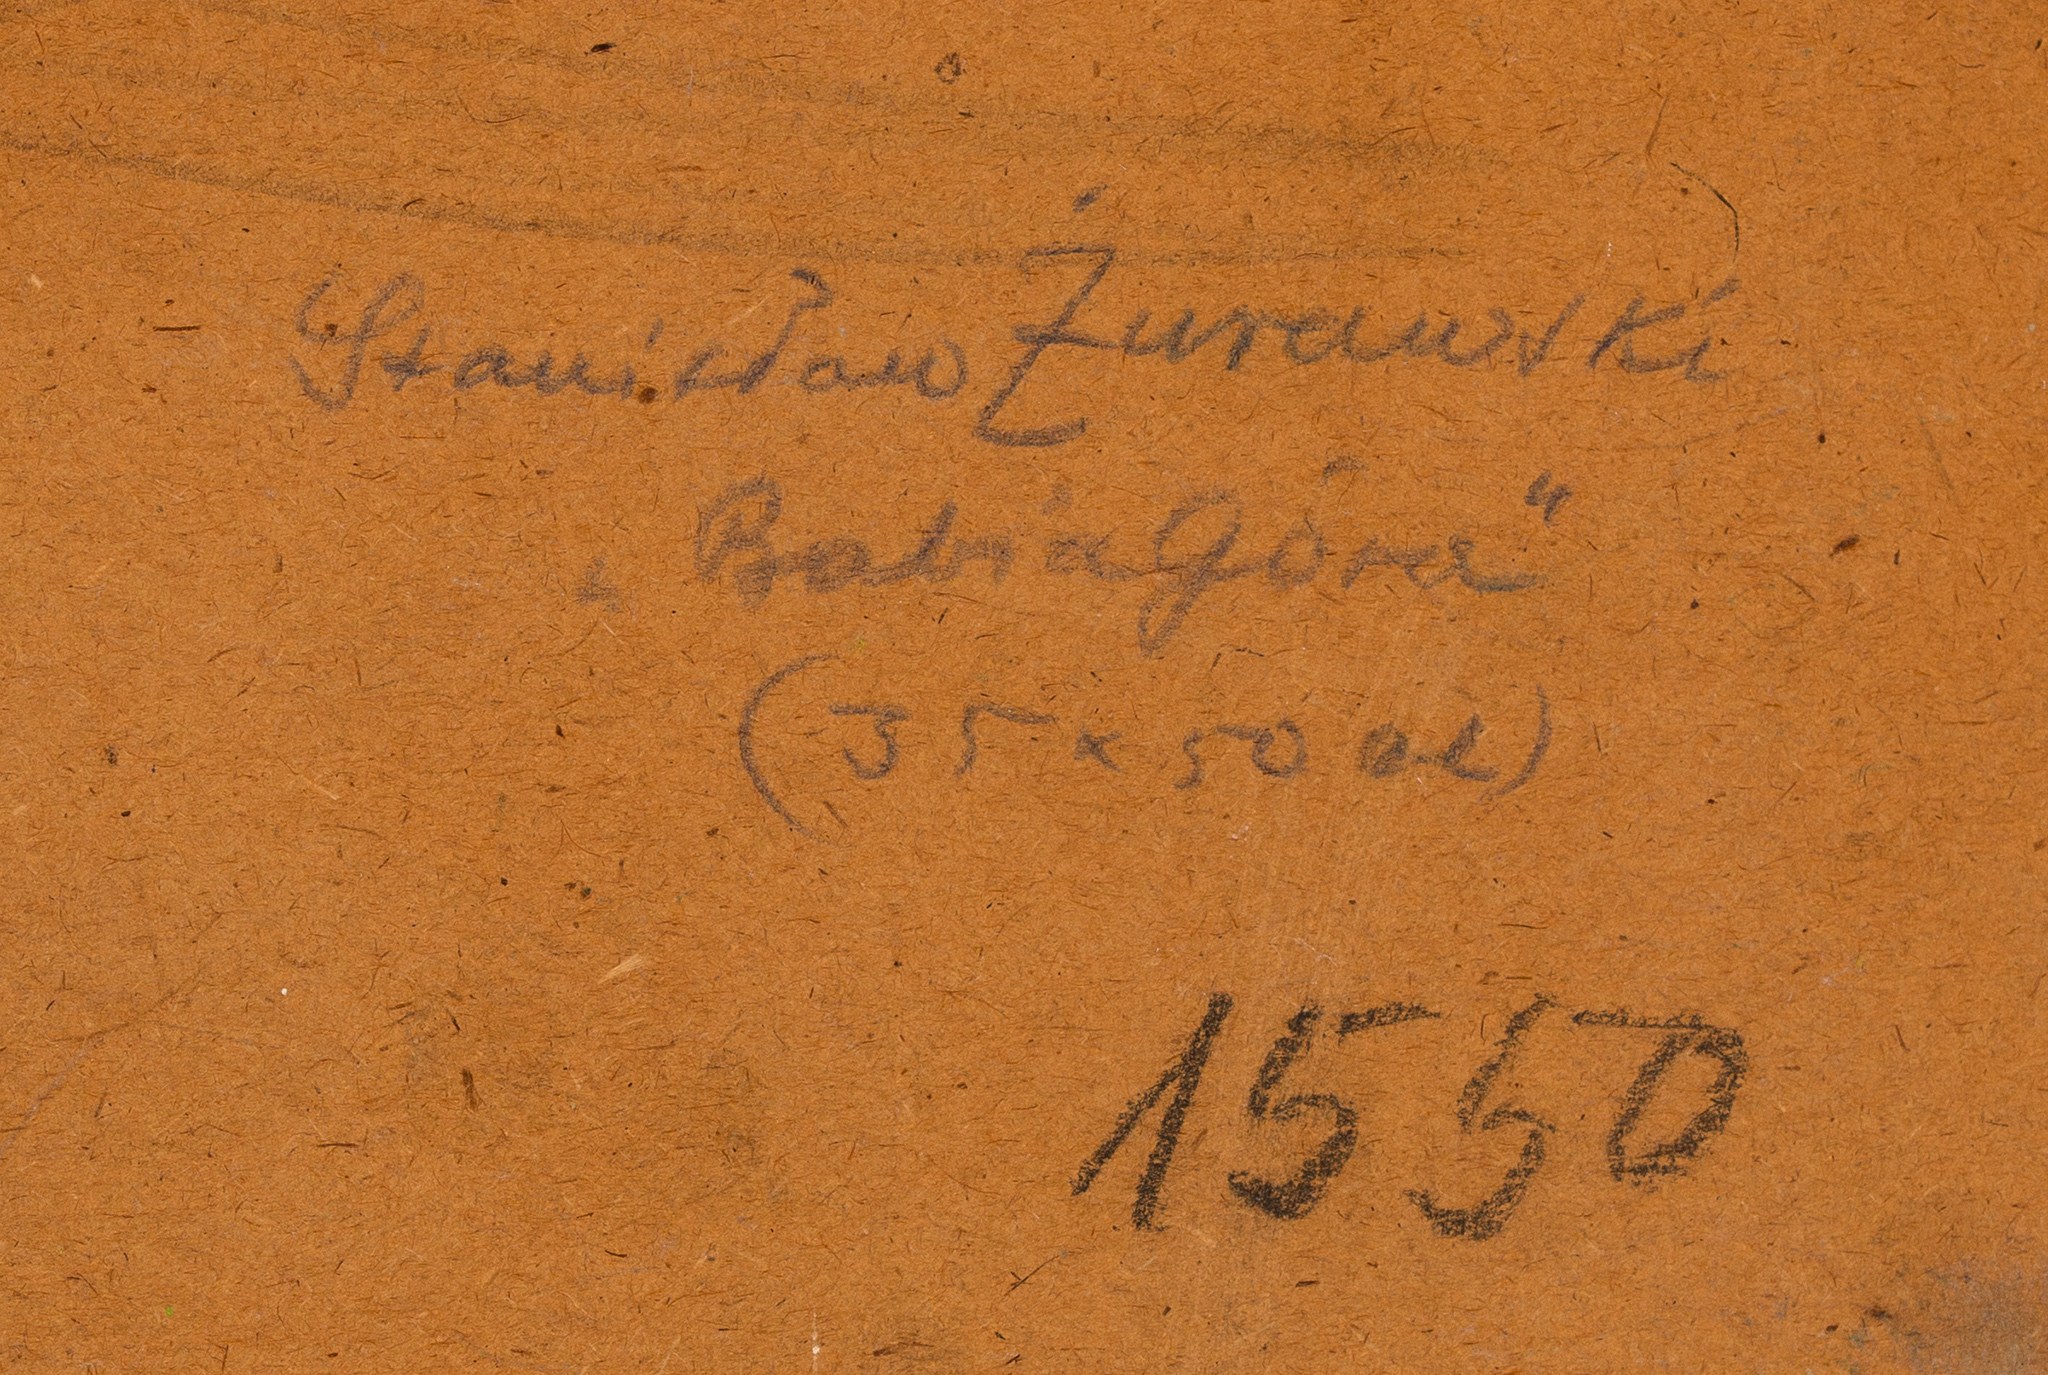 Stanisław Żurawski
„Babia Góra"
(35 x 50 ol)
1550